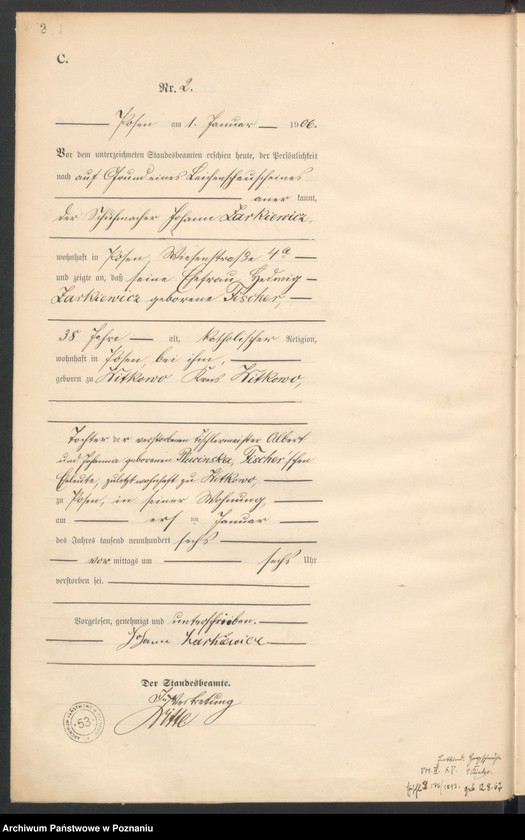 2
C.
Nr. 2.
Posen am 1. Januar 1906.
Vor dem unterzeichneten Standesbeamten erschien heute, der Persönlichkeit
nach auf Grund eines Leichenschauscheines
anerkannt,
der Schuhmacher Johann Zarkiewicz,
wohnhaft in Posen, Wiesenstraße 4a
und zeigte an, daß seine Ehefrau Hedwig
Zarkiewicz geborene Fischer,
38 Jahre alt, katholischer Religion,
wohnhaft in Posen, bei ihm,
geboren zu Witkowo Kreis Witkowo,
Tochter der verstorbenen Tischlermeister Albert
und Johanna geborenen Rucinska, Fischer'schen
Eheleute, zuletzt wohnhaft zu Witkowo,
zu Posen, in seiner Wohnung,
am ersten Januar
des Jahres tausend neunhundert sechs
vormittags um sechs Uhr
verstorben sei.
Vorgelesen, genehmigt und unterschrieben.
Johann Zarkiewicz
Der Standesbeamte.
In Vertretung
53
Archiwum Państwowe w Poznaniu